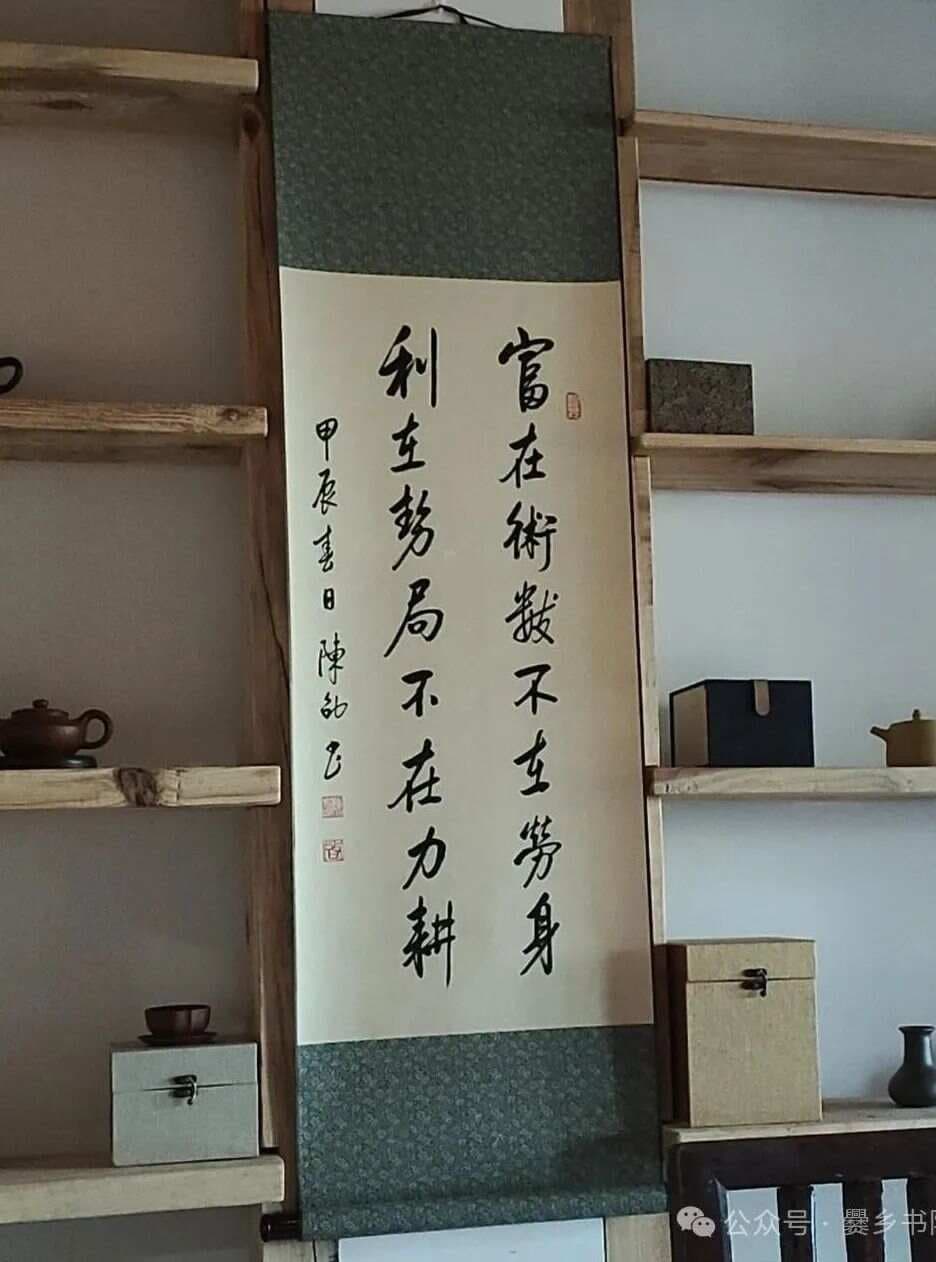 富在術數不在勞身
利在勢局不在力耕
甲辰春日陳
公众号·爨乡书院